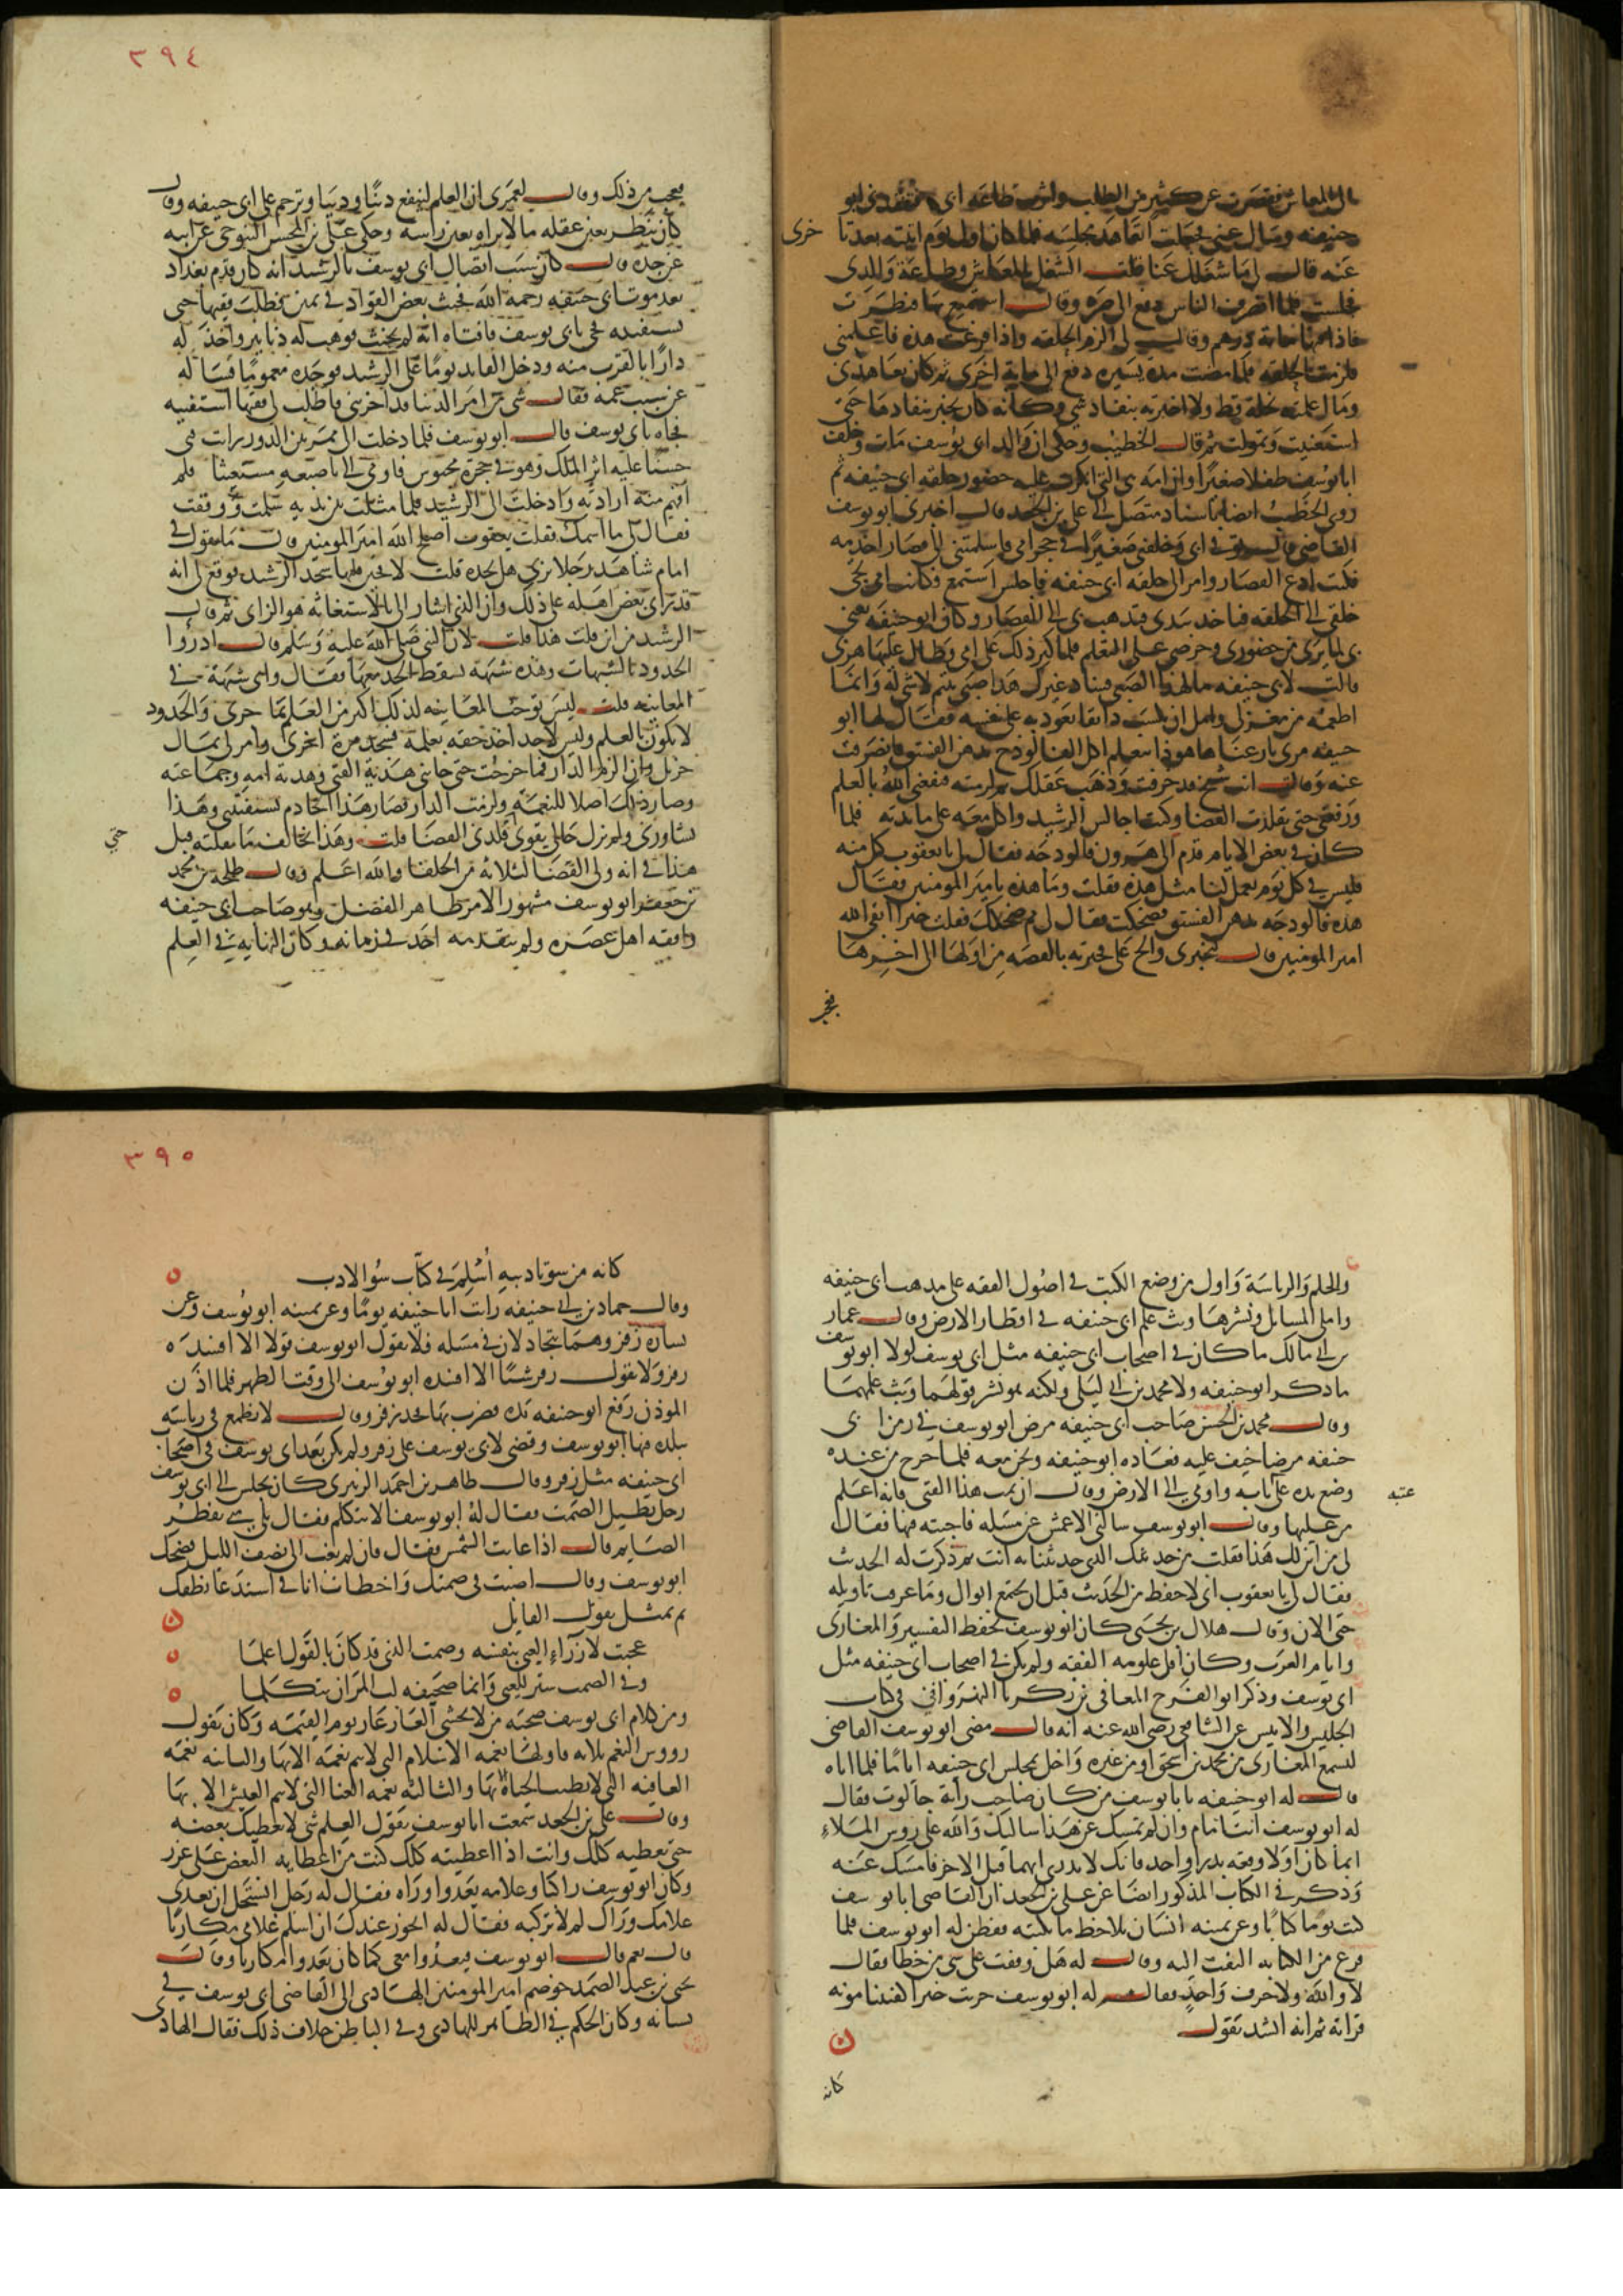 الى المعاش فقصرت عن كثير من الطلب واثرت طاعة ابي فتفقدني ابو
حنيفه وسال عني فجعلت اتعاهد مجلسه فلما كان اول يوم اتيته بعد تاخري
عنه قال لي ما شغلك عنا قلت الشغل بالمعاش وطاعة والدي
فجلست فلما انصرف الناس دفع الي صره وقال استمتع بها فنظرت
فاذا فيها مايه درهم وقال لي الزم الحلقه واذا فرغت هذه فاعلمني
فلزمت الحلقه فلما مضت مدة يسيره دفع الي مايه اخرى ثم كان يتعاهدني
وما اعلمته بخلة قط ولا اخبرته بنفاد شي وكانه كان يخبر بنفادها حتى
استغنيت وتمولت ثم قال الخطيب وحكى ان والد ابي يوسف مات وخلف
ابا يوسف طفلا صغيرا وان امه هي التي انكرت عليه حضور حلقه ابي حنيفه ثم
روى الخطيب ايضا باسناد متصل الى علي بن الجعد قال اخبرني ابو يوسف
القاضي قال توفي ابي وخلفني صغيرا في حجر امي فاسلمتني الى قصار اخدمه
فكنت ادع القصار وامر الى حلقه ابي حنيفه فاجلس استمع فكانت امي تجي
خلفي الى الحلقه فتاخذ بيدي فتذهب بي الى القصار وكان ابو حنيفه يعني
بي لما يرى من حضوري وحرصي على التعلم فلما كبر ذلك على امي وطال عليها هربي
قالت لابي حنيفه ما لهذا الصبي فساد غيرك هذا صبي يتيم لا شي له وانما
اطعمه من مغزلي وامل ان يكسب دانقا يعود به على نفسه فقال لها ابو
حنيفه مري يا رعنا ها هو ذا يتعلم اكل الفالوذج بدهن الفستق فانصرفت
عنه وقالت انت شيخ قد خرفت وذهب عقلك ثم لزمته فنفعني الله بالعلم
ورفعني حتى تقلدت القضا وكنت اجالس الرشيد واكل معه على مايدته فلما
كان في بعض الايام قدم الى هرون فالودجه فقال لي يا يعقوب كل منه
فليس في كل يوم يعمل لنا مثل هذه فقلت وما هذه يا مير المومنين فقال
هذه فالودجه بدهن الفستق فضحكت فقال لي مم ضحكك فقلت خيرا ابقى الله
امير المومنين قال لتخبرني والح علي فخبرته بالقصه من اولها الى اخرها
فعجب
٣٩٤
فعجب من ذلك وقال لعمري ان العلم لينفع دينا ودنيا وترحم على ابي حنيفه وقال
كان ينظر بعين عقله ما لا يراه بعين راسه وحكى علي بن المحسن التنوخي عن ابيه
عن جده قال كان سبب اتصال ابي يوسف بالرشيد انه كان قدم بغداد
بعد موت ابي حنيفه رحمه الله فحنث بعض القواد في يمين فطلب فقيها حتى
يستفتيه فجي بابي يوسف فافتاه انه لم يحنث فوهب له دنانير واخذ له
دارا بالقرب منه ودخل القايد يوما على الرشيد فوجده مغموما فساله
عن سبب غمه فقال شي من امر الدين قد احزنني فاطلب لي فقيها استفتيه
فجاه بابي يوسف قال ابو يوسف فلما دخلت الى ممر بين الدور رايت فتى
حسنا عليه اثر الملك وهو في حجرة محبوس فاومى الي باصبعه مستغيثا فلم
افهم منه ارادته وادخلت الى الرشيد فلما مثلت بين يديه سلمت ووقفت
فقال لي ما اسمك فقلت يعقوب اصلح الله امير المومنين قال ما تقول في
امام شاهد رجلا يزني هل يحده قلت لا فحين قلتها سجد الرشيد فوقع لي انه
قد راى بعض اهله على ذلك وان الذي اشار الي بالاستغاثه هو الزاني ثم قال
الرشيد من اين قلت هذا قلت لان النبي صلى الله عليه وسلم قال ادروا
الحدود بالشبهات وهذه شبهة يسقط الحد معها فقال واي شبهة في
المعاينه قلت ليس توجب المعاينه لذلك اكثر من العلم بما جرى والحدود
لا تكون بالعلم وليس لاحد اخذ حقه بعلمه فسجد مرة اخرى وامر لي بمال
جزيل وان الزم الدار فما خرجت حتى جاتني هدية الفتى وهدية امه وجماعته
وصار ذلك اصلا للنعمه ولزمت الدار فصار هذا الخادم يستفتني وهذا
يشاورني ولم تزل حالي تقوى حتى قلدني القضا قلت وهذا يخالف ما نقلته قبل
هذا في انه ولى القضا لثلاثه من الخلفا والله اعلم وقال طلحه بن محمد
بن جعفر ابو يوسف مشهور الامر ظاهر الفضل وهو صاحب ابي حنيفه
وافقه اهل عصره ولم يتقدمه احد في زمانه وكان النهايه في العلم
والحلم والرياسة واول من وضع الكتب في اصول الفقه على مذهب ابي حنيفه
واملى المسائل ونشرها وبث علم ابي حنيفه في اقطار الارض وقال عمار
بن ابي مالك ما كان في اصحاب ابي حنيفه مثل ابي يوسف لولا ابو يوسف
ما ذكر ابو حنيفه ولا محمد بن ابي ليلى ولكنه هو نشر قولهما وبث علمهما
وقال محمد بن الحسن صاحب ابي حنيفه مرض ابو يوسف في زمن ابي
حنيفه مرضا خيف عليه فعاده ابو حنيفه ونحن معه فلما خرج من عنده
وضع يده على عتبه بابه واومى الى الارض وقال ان يمت هذا الفتى فانه اعلم
من عليها وقال ابو يوسف سالني الاعمش عن مسله فاجبته فيها فقال
لي من اين لك هذا فقلت من حديثك الذي حدثتنا به انت ثم ذكرت له الحديث
فقال لي يا يعقوب اني لاحفظ من الحديث قبل ان يجتمع ابوال وما عرفت تاويله
حتى الان وقال هلال بن يحيى كان ابو يوسف يحفظ التفسير والمغازى
وايام العرب وكان اقل علومه الفقه ولم يكن في اصحاب ابي حنيفه مثل
ابي يوسف وذكر ابو الفرج المعافى بن زكريا النهرواني في كتاب
الجليس والانيس عن الشافعي رضي الله عنه انه قال مضى ابو يوسف القاضي
ليسمع المغازى من محمد بن اسحق او من غيره واخل بمجلس ابي حنيفه اياما فلما اتاه
قال له ابو حنيفه يا با يوسف من كان صاحب راية جالوت فقال
له ابو يوسف انت امام وان لم تمسك عن هذا سالتك والله على روس الملاء
ايما كان اولا وقعه بدر او احد فانك لا تدري ايهما قبل الاخر فامسك عنه
وذكر في الكتاب المذكور ايضا عن علي بن الجعد ان القاضي ابا يوسف
كتب يوما كتابا وعن يمينه انسان يلاحظ ما يكتبه ففطن له ابو يوسف فلما
فرغ من الكتابه التفت اليه وقال له هل وقفت على شي من خطا فقال
لا والله ولا حرف واحد فقال له ابو يوسف جزيت خيرا كفيتنا مونه
قراته ثم انه انشد يقول
كانه
٣٩٥
كانه من سو تاديبه اسلم في كتاب سو الادب
وقال حماد بن ابي حنيفه رايت ابا حنيفه يوما وعن يمينه ابو يوسف وعن
يساره زفر وهما يتجادلان في مسله فلا يقول ابو يوسف قولا الا افسده
زفر ولا يقول زفر شيا الا افسده ابو يوسف الى وقت الظهر فلما اذن
الموذن رفع ابو حنيفه يده فضرب بها فخذ زفر وقال لا تطمع في رياسه
بلده فيها ابو يوسف وقضى لابي يوسف على زفر ولم يكن بعد ابي يوسف في اصحاب
ابي حنيفه مثل زفر وقال طاهر بن احمد الزبيري كان يجلس الى ابي يوسف
رجل يطيل الصمت فقال له ابو يوسف الا تتكلم فقال بلى متى يفطر
الصايم قال اذا غابت الشمس فقال فان لم تغب الى نصف الليل فضحك
ابو يوسف وقال اصبت في صمتك واخطات انا في استدعا نطقك
ثم تمثل بقول القايل
عجبت لازراء العيي بنفسه وصمت الذي قد كان بالقول اعلما
وفي الصمت ستر للعيي وانما صحيفه لب المر ان يتكلما
ومن كلام ابي يوسف صحبه من لا يخشى العار عار يوم القيمه وكان يقول
رووس النعم ثلاثه فاولها نعمه الاسلام التي لا يتم نعمه الا بها والثانيه نعمه
العافيه التي لا تطيب الحياة الا بها والثالثه نعمه الغنا التي لا يتم العيش الا بها
وقال علي بن الجعد سمعت ابا يوسف يقول العلم شي لا يعطيك بعضه
حتى تعطيه كلك وانت اذا اعطيته كلك كنت من اعطايه البعض على غرر
وكان ابو يوسف راكبا وغلامه يعدوا وراه فقال له رجل اتستحل ان يعدى
غلامك وراك لم لا تركبه فقال له ايجوز عندك ان اسلم غلامي مكاريا
قال نعم قال ابو يوسف فيعدوا معي كما كان يعدوا لو كان مكاريا وقال
يحيى بن عبد الصمد خوصم امير المومنين الهادي الى القاضي ابي يوسف في
بستانه وكان الحكم في الظاهر للهادي وفي الباطن خلاف ذلك فقال الهادي